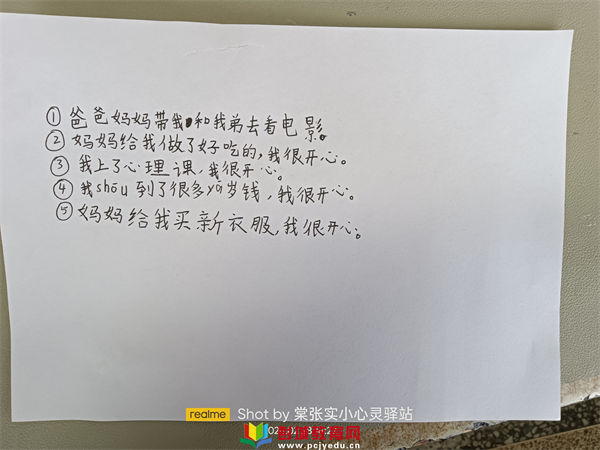 ① 爸爸妈妈带我和我弟去看电影。
② 妈妈给我做了好吃的,我很开心。
③ 我上了心理课,我很开心。
④ 我shōu到了很多yā岁钱,我很开心。
⑤ 妈妈给我买新衣服,我很开心。
realme Shot by 棠张实小心灵驿站
彭城教育网
www.pcjyedu.cn